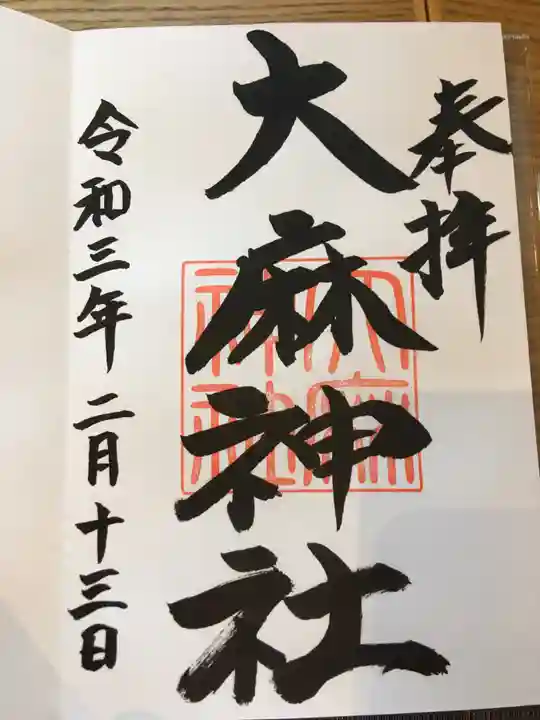 奉拝
大麻神社
大麻
神社
令和三年 二月十三日